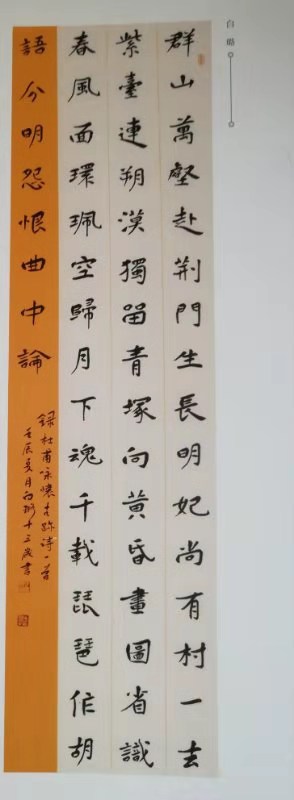 白
群山萬壑赴荆門生長明妃尚有村一去
紫臺連朔漠獨留青塚向黃昏畫圖省識
春風面環珮空歸月下魂千載琵琶作胡
語分明怨恨曲中論
錄杜甫詠懷古跡詩一首
壬辰夏月白十三歲書